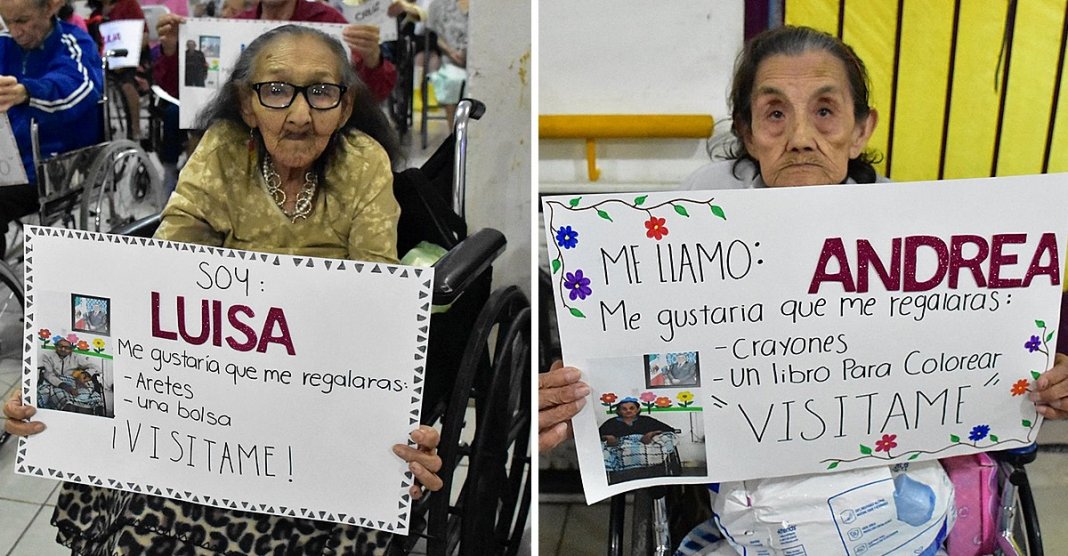 SOY:
LUISA
Me gustaría que me regalaras:
- Aretes
- una bolsa
¡VISITAME!
ME LLAMO:
ANDREA
Me gustaria que me regalaras:
- Crayones
- un libro Para Colorear
"VISITAME"